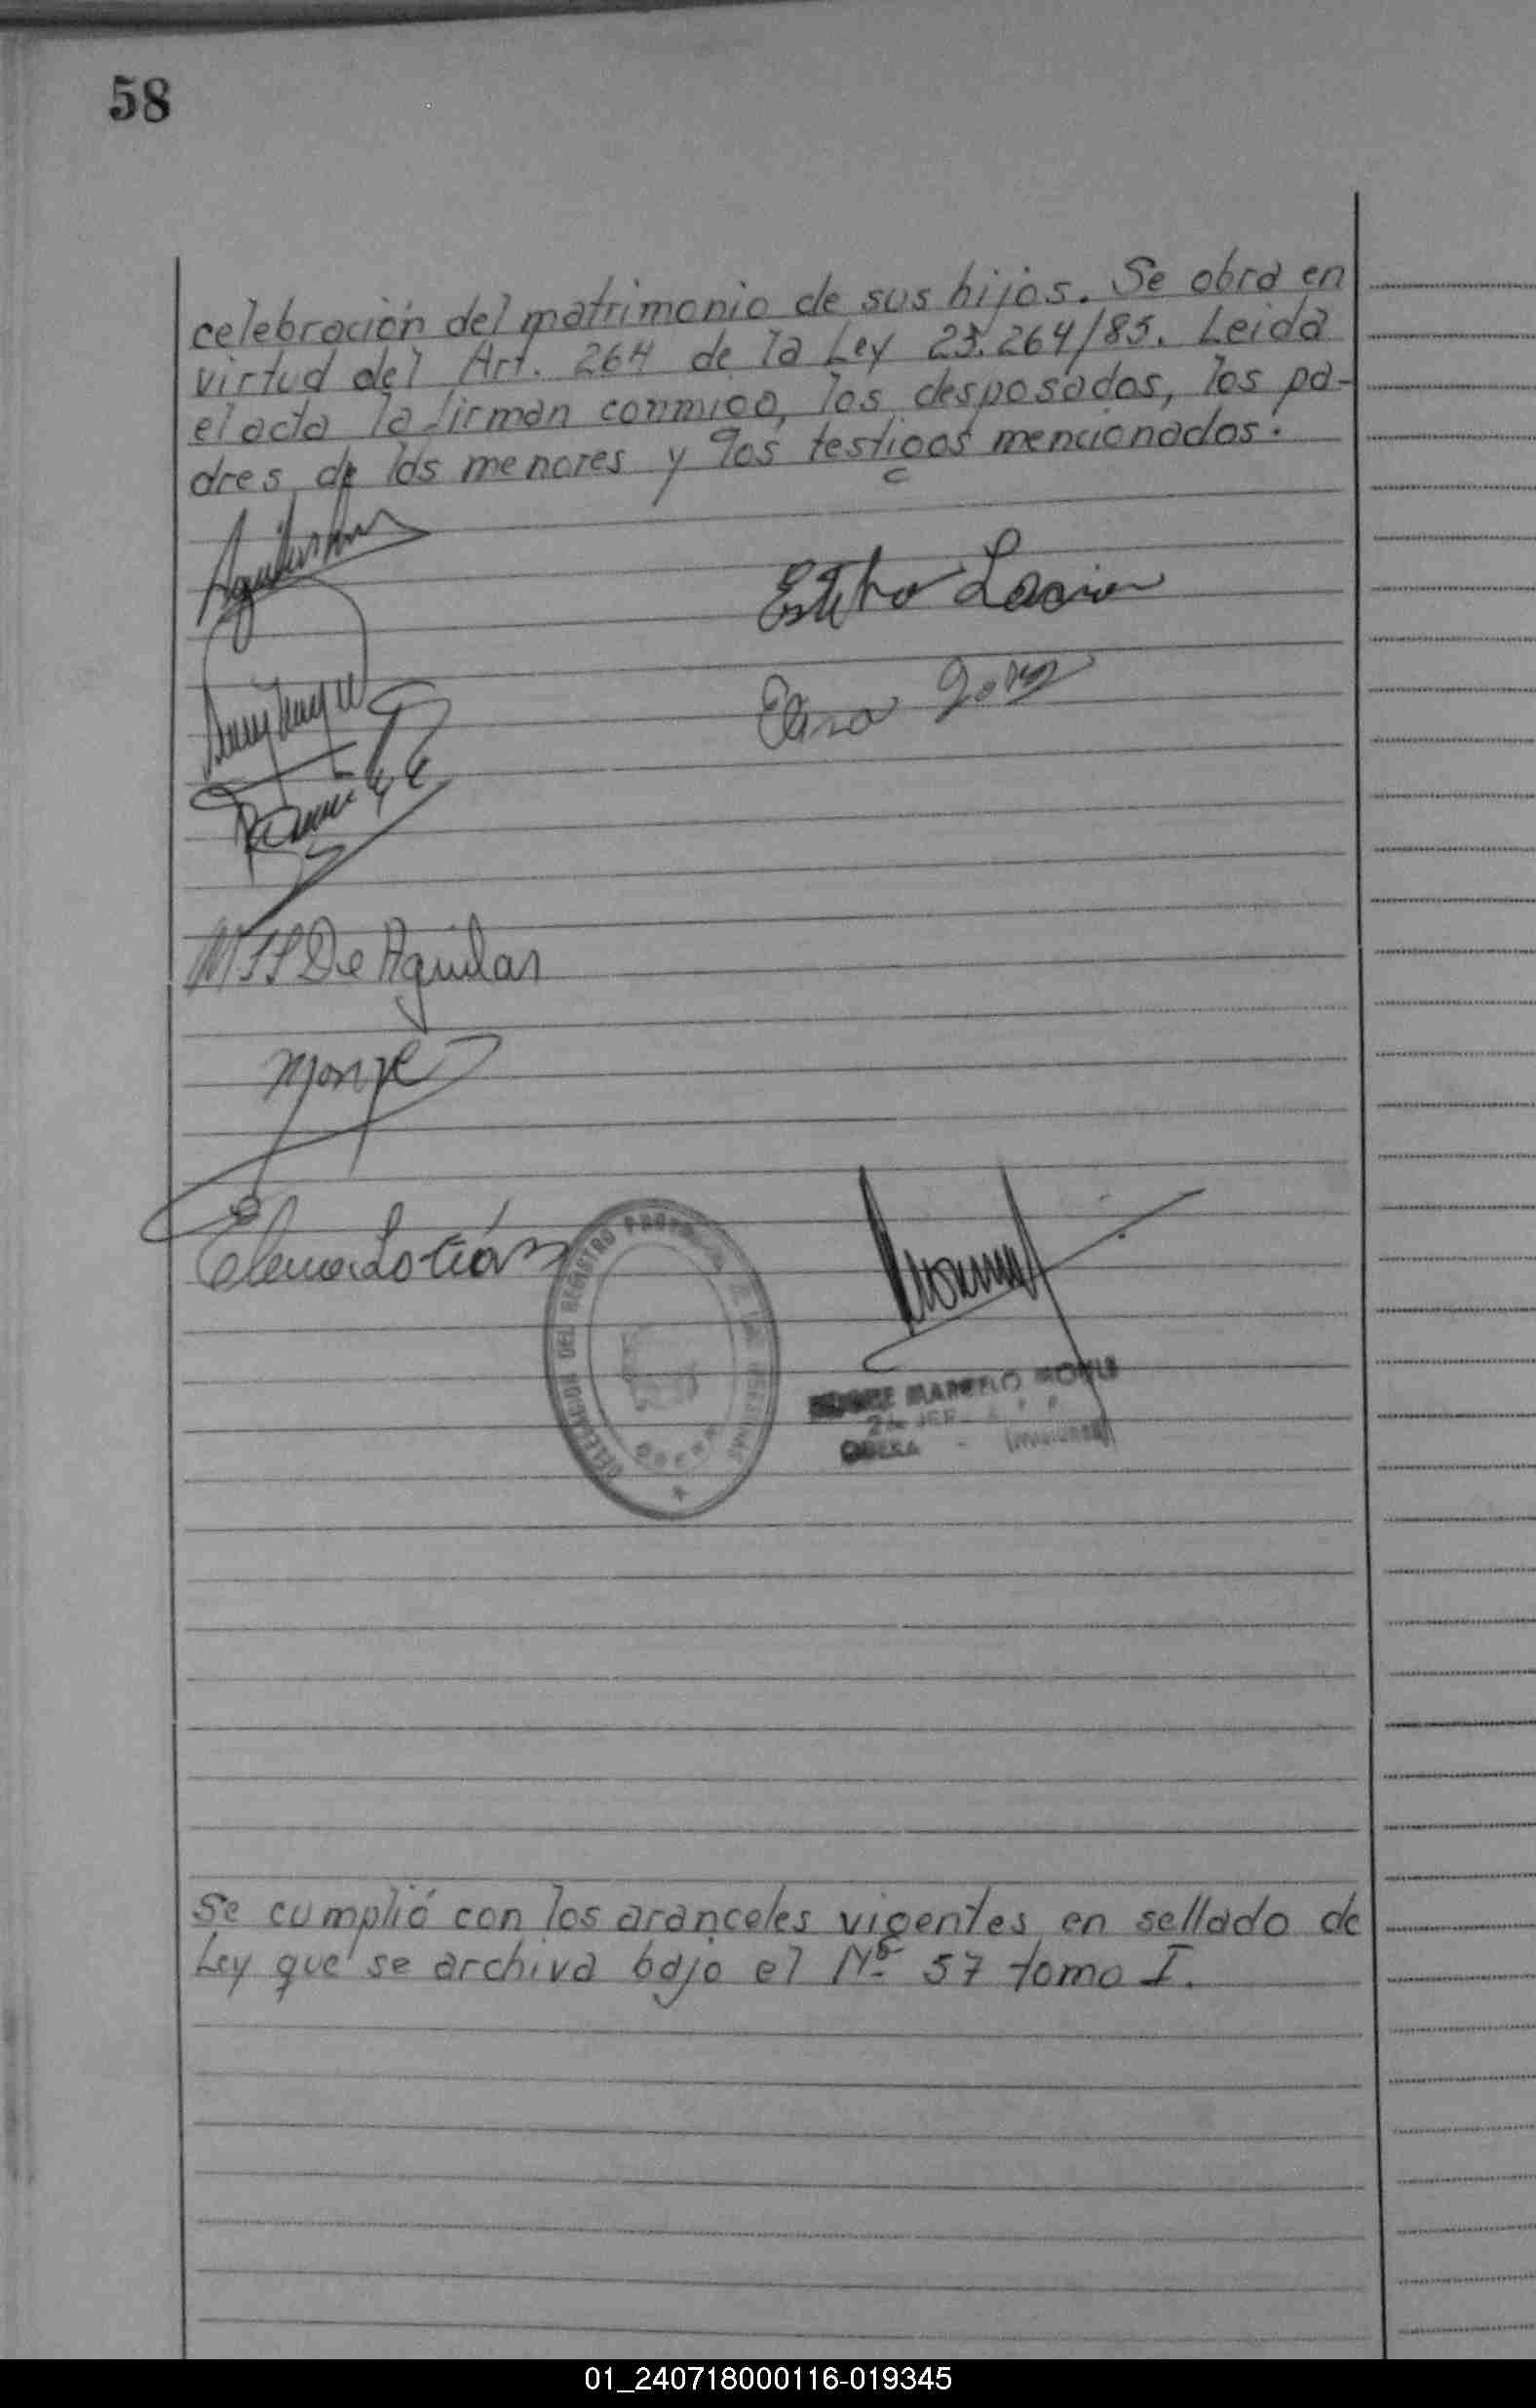 58
celebración del matrimonio de sus hijos. Se obra en
virtud del Art. 264 de la Ley 23.264/85. Leida
el acta la firman conmigo, los desposados, los pa-
dres de los menores y los testigos mencionados.
De Aguilar
Monje
Elena
DELEGACION DEL REGISTRO PROVINCIAL DE LAS PERSONAS
OBERA
MARCELO
OBERA - (MISIONES)
Se cumplió con los aranceles vigentes en sellado de
Ley que se archiva bajo el Nº 57 tomo I.
01_240718000116-019345